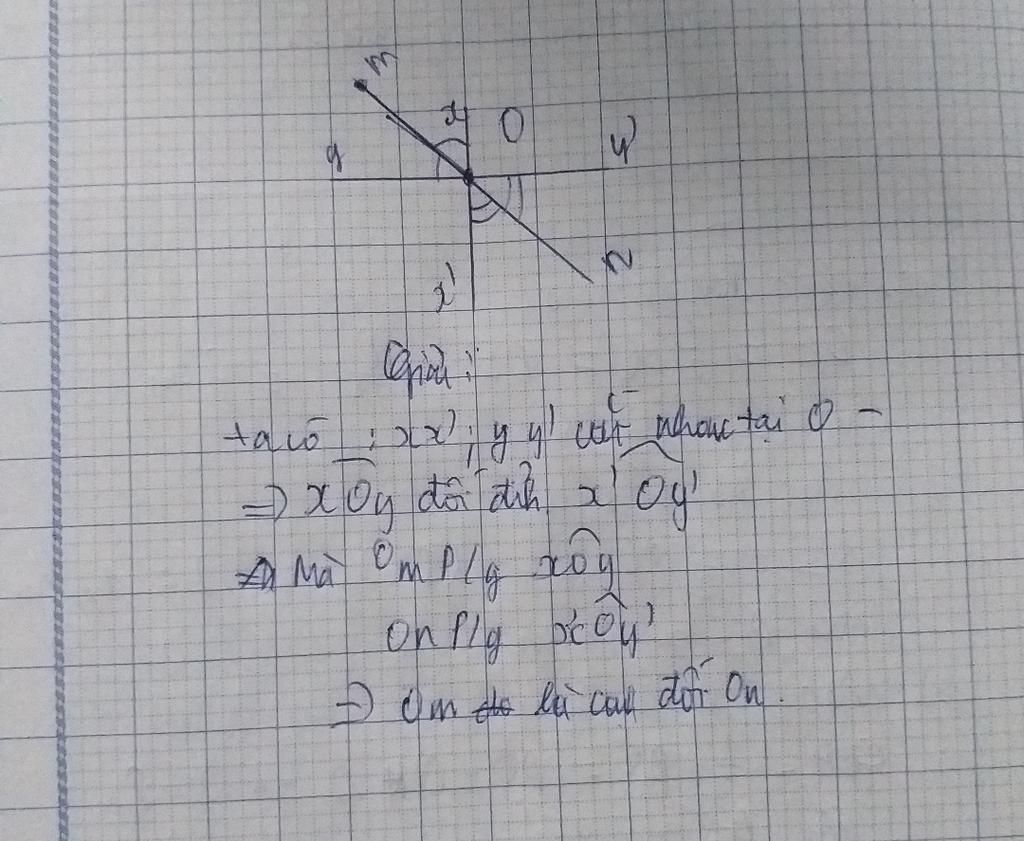 m
x O
y y'
n
x'
Giải:
ta có : xx' ; yy' cắt nhau tại O
=> xOy đối đỉnh x'Oy'
Mà Om P/g xOy
On P/g x'Oy'
=> Om là cạnh đối On.